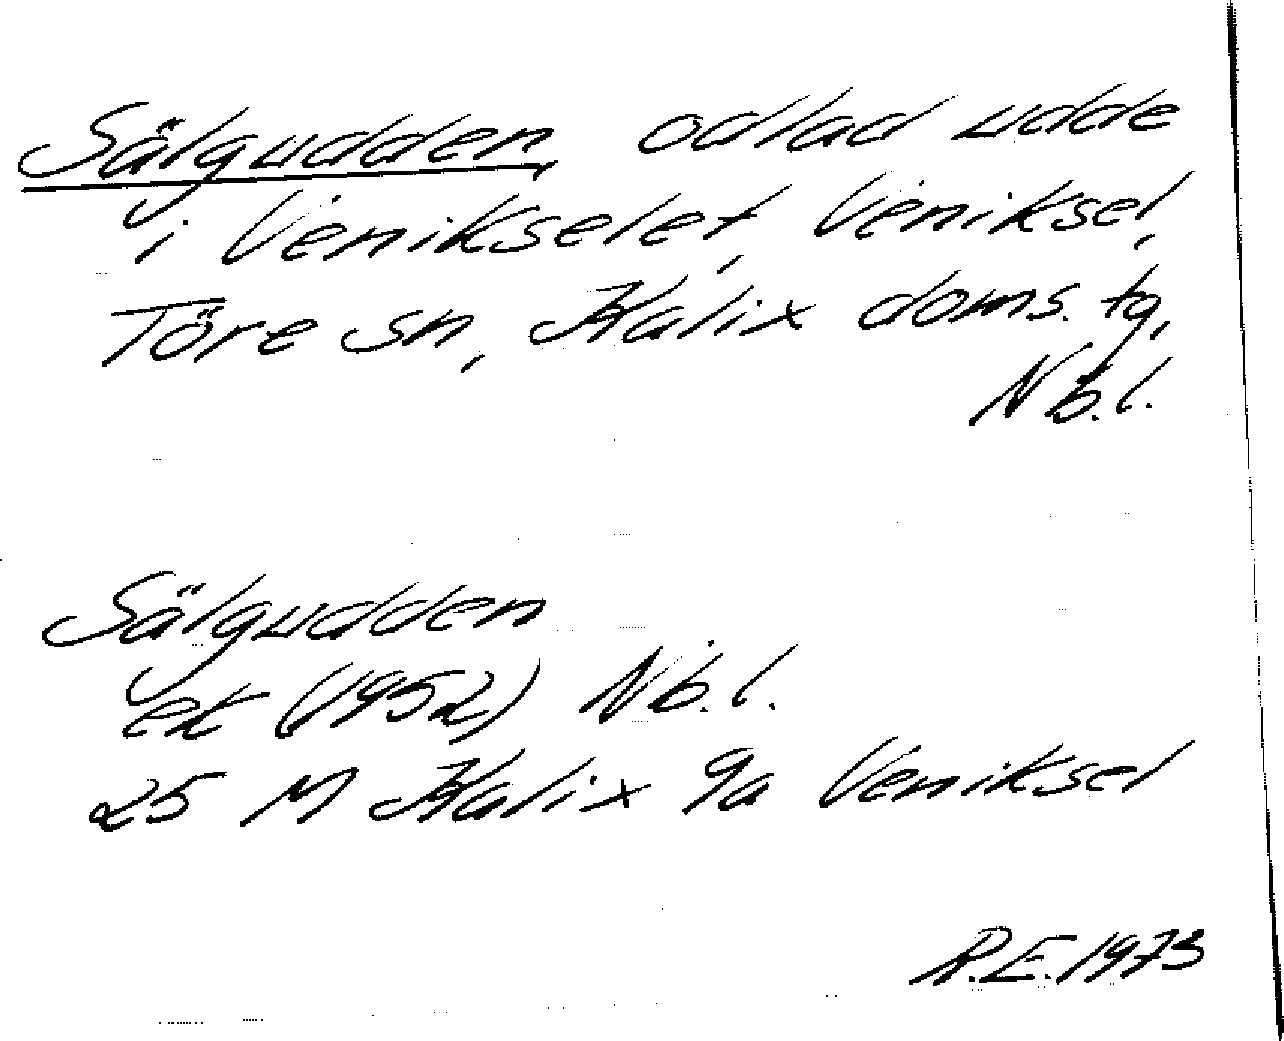 Sälgudden, odlad udde
i Venikselet, Veniksel,
Töre sn, Kalix doms. tg,
Nb.l.
Sälgudden
ek (1952) Nb.l.
25 M Kalix 9a Veniksel
R.E. 1973